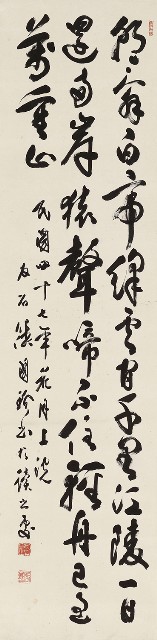 朝辭白帝綵雲間千里江陵一日
還兩岸猿聲啼不住輕舟已過
萬重山
民國四十七年花月上浣
友石

書於

之處